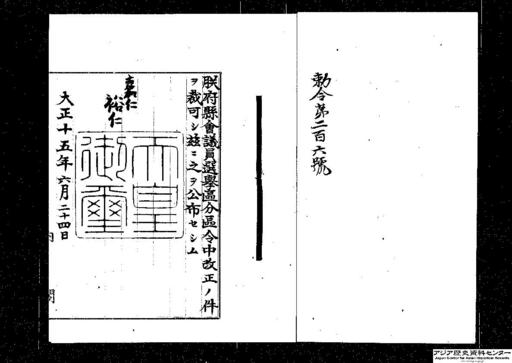 勅令第二百六號
朕府縣會議員選擧區分區令中改正ノ件
ヲ裁可シ玆ニ之ヲ公布セシム
嘉仁
裕仁
天皇御璽
大正十五年六月二十四日
内閣
アジア歴史資料センター
Japan Center for Asian Historical Records